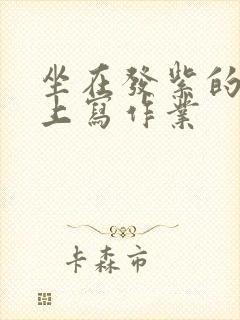 坐在發紫的
上寫作業
卡森市